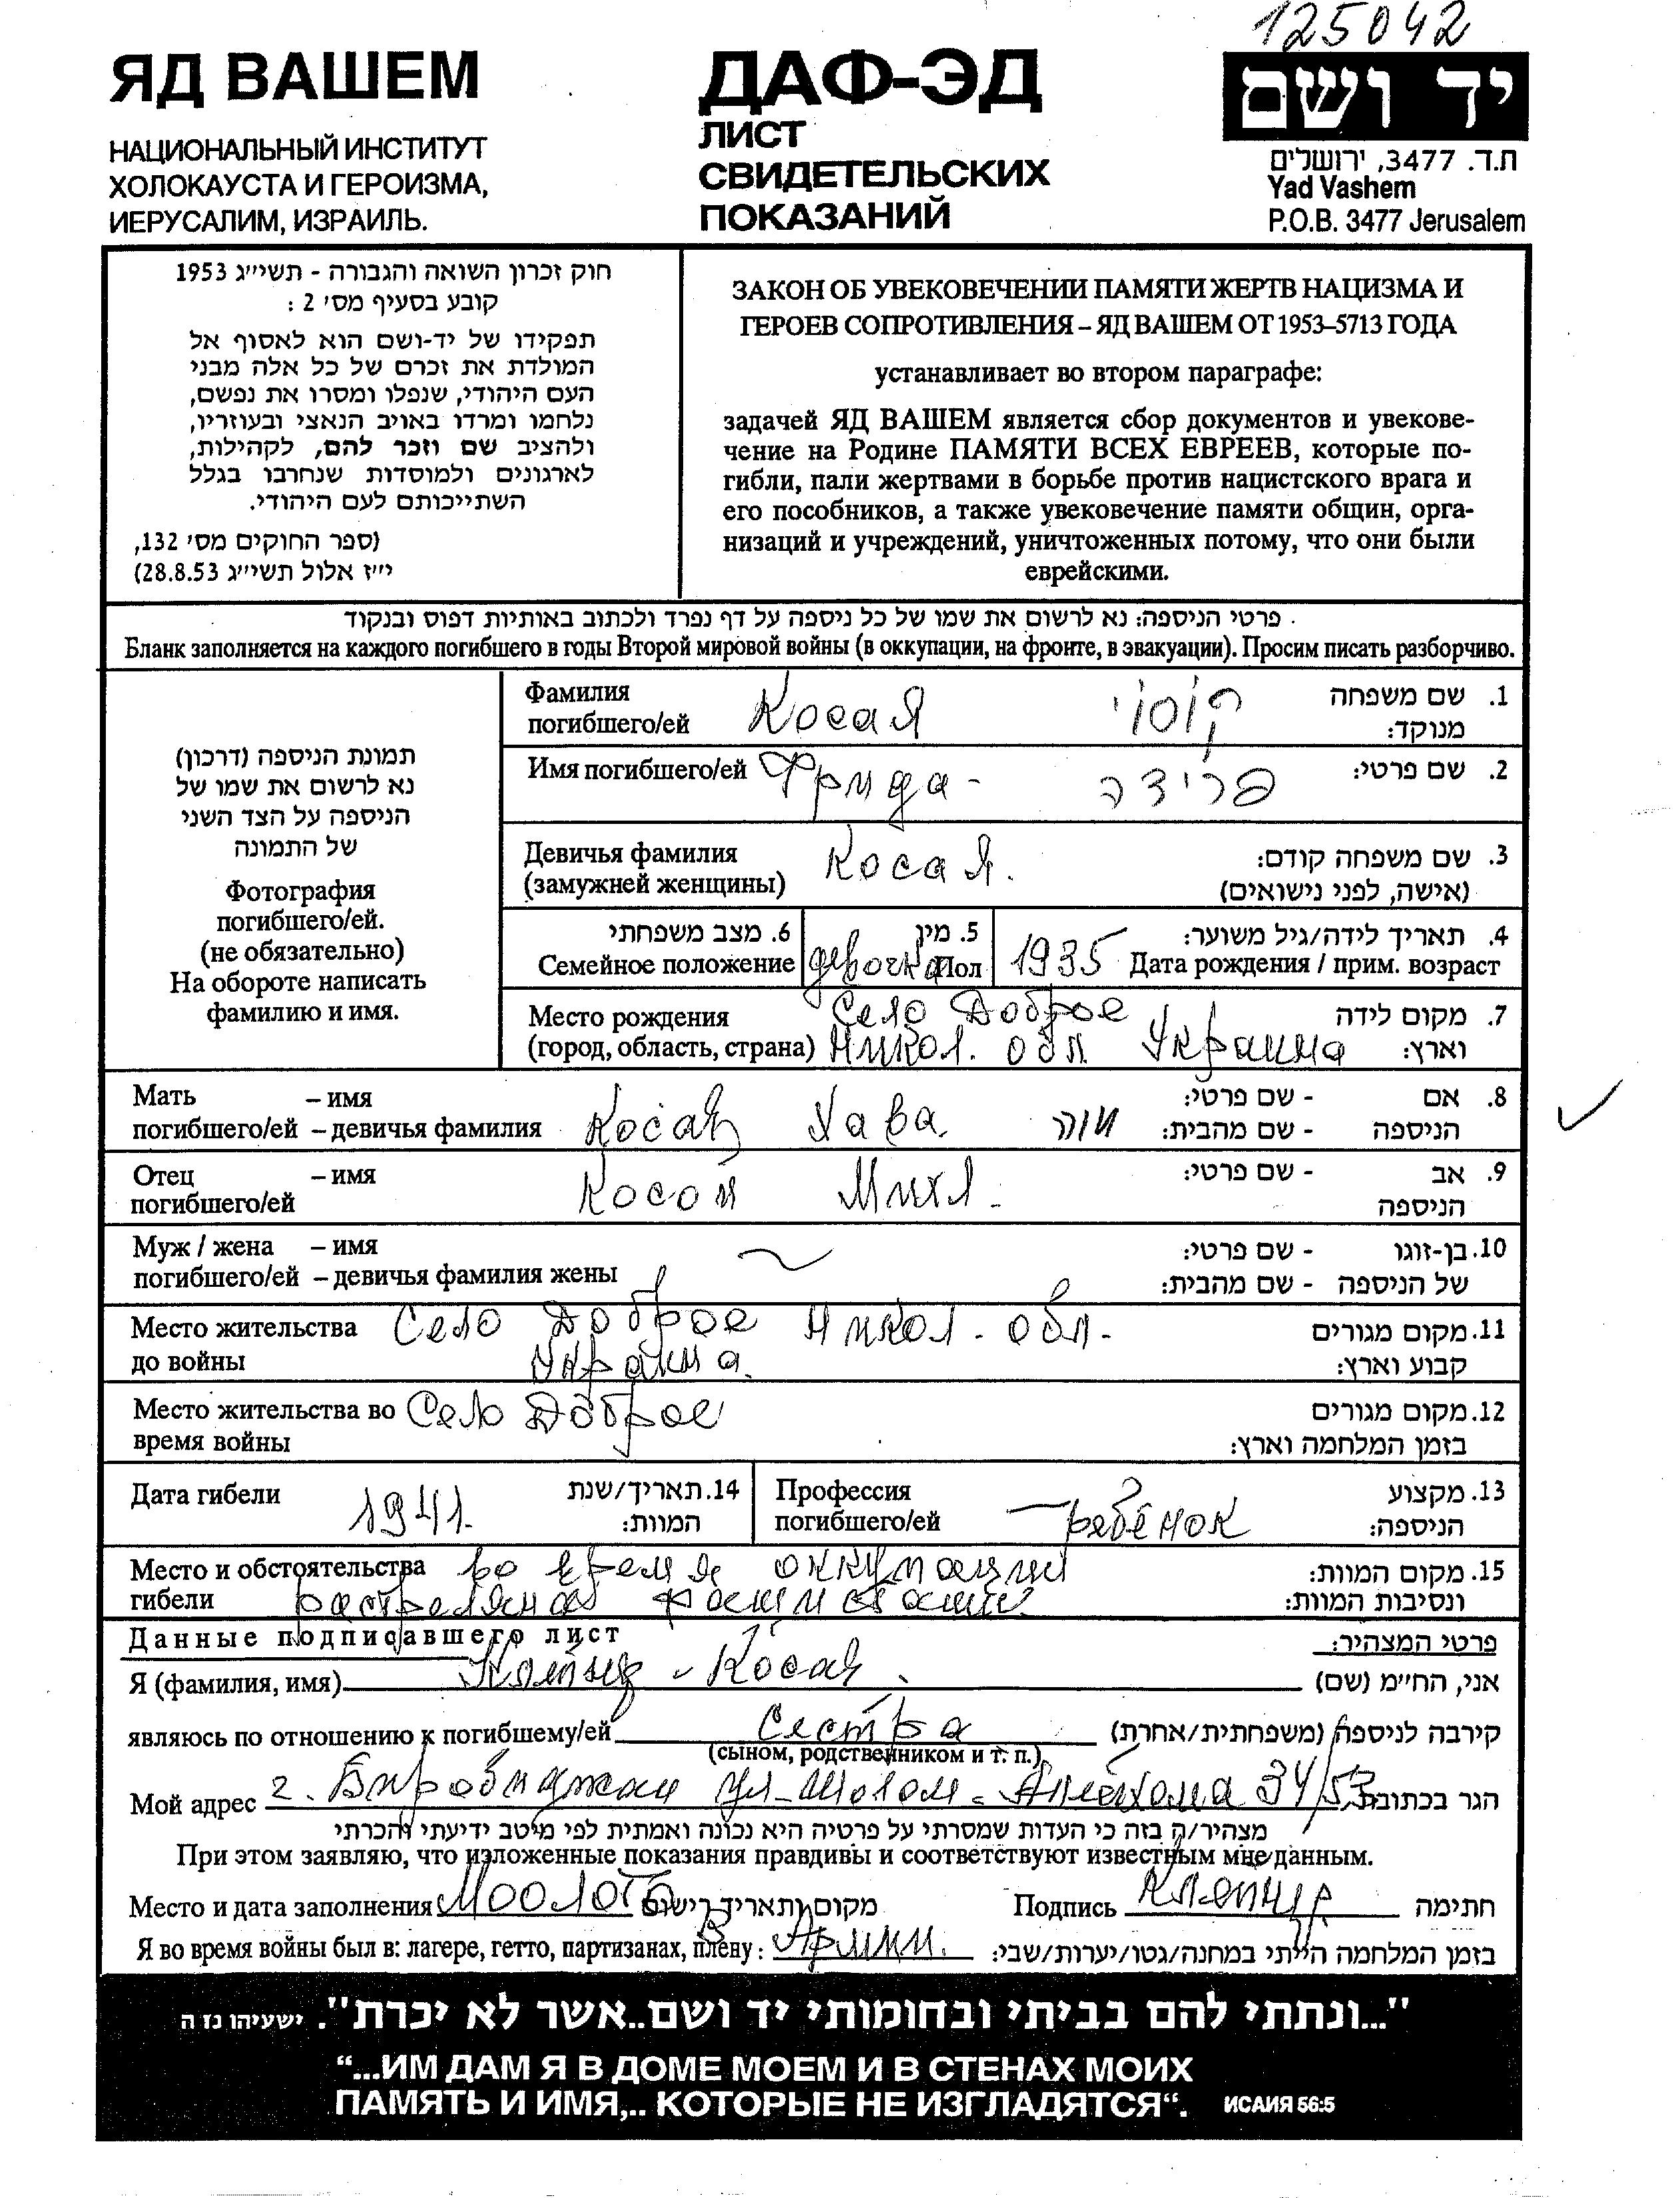 125042
ЯД ВАШЕМ
НАЦИОНАЛЬНЫЙ ИНСТИТУТ
ХОЛОКАУСТА И ГЕРОИЗМА,
ИЕРУСАЛИМ, ИЗРАИЛЬ.
ДАФ-ЭД
ЛИСТ
СВИДЕТЕЛЬСКИХ
ПОКАЗАНИЙ
יד ושם
ת.ד. 3477, ירושלים
Yad Vashem
P.O.B. 3477 Jerusalem
חוק זכרון השואה והגבורה - תשי״ג 1953
קובע בסעיף מס׳ 2 :
תפקידו של יד-ושם הוא לאסוף אל
המולדת את זכרם של כל אלה מבני
העם היהודי, שנפלו ומסרו את נפשם,
נלחמו ומרדו באויב הנאצי ובעוזריו,
ולהציב שם וזכר להם, לקהילות,
לארגונים ולמוסדות שנחרבו בגלל
השתייכותם לעם היהודי.
(ספר החוקים מס׳ 132,
י״ז אלול תשי״ג 28.8.53)
ЗАКОН ОБ УВЕКОВЕЧЕНИИ ПАМЯТИ ЖЕРТВ НАЦИЗМА И
ГЕРОЕВ СОПРОТИВЛЕНИЯ – ЯД ВАШЕМ ОТ 1953–5713 ГОДА
устанавливает во втором параграфе:
задачей ЯД ВАШЕМ является сбор документов и увекове-
чение на Родине ПАМЯТИ ВСЕХ ЕВРЕЕВ, которые по-
гибли, пали жертвами в борьбе против нацистского врага и
его пособников, а также увековечение памяти общин, орга-
низаций и учреждений, уничтоженных потому, что они были
еврейскими.
פרטי הניספה: נא לרשום את שמו של כל ניספה על דף נפרד ולכתוב באותיות דפוס ובנקוד
Бланк заполняется на каждого погибшего в годы Второй мировой войны (в оккупации, на фронте, в эвакуации). Просим писать разборчиво.
תמונת הניספה (דרכון)
נא לרשום את שמו של
הניספה על הצד השני
של התמונה
Фотография
погибшего/ей.
(не обязательно)
На обороте написать
фамилию и имя.
Фамилия
погибшего/ей Косая קוסוי
1. שם משפחה
מנוקד:
Имя погибшего/ей Фрида - פרידה 2. שם פרטי:
Девичья фамилия
(замужней женщины) Косая.
3. שם משפחה קודם:
(אישה, לפני נישואים)
6. מצב משפחתי
Семейное положение
5. מין
девочка Пол
4. תאריך לידה/גיל משוער:
1935 Дата рождения / прим. возраст
Место рождения Село Доброе 7. מקום לידה
(город, область, страна) Никол. обл. Украина וארץ:
Мать – имя 8. אם - שם פרטי:
погибшего/ей – девичья фамилия Косая Хава חוה הניספה - שם מהבית:
Отец – имя 9. אב - שם פרטי:
погибшего/ей Косой Михл הניספה
Муж / жена – имя 10. בן-זוגו - שם פרטי:
погибшего/ей – девичья фамилия жены של הניספה - שם מהבית:
Место жительства Село Доброе Никол. обл. 11. מקום מגורים
до войны Украина. קבוע וארץ:
Место жительства во Село Доброе 12. מקום מגורים
время войны בזמן המלחמה וארץ:
Дата гибели 1941. 14. תאריך/שנת
המוות:
Профессия 13. מקצוע
погибшего/ей ребёнок הניספה:
Место и обстоятельства во время оккупации 15. מקום המוות:
гибели растреляная фашистами. ונסיבות המוות:
Данные подписавшего лист פרטי המצהיר:
Я (фамилия, имя) - Косая. אני, הח״מ (שם)
являюсь по отношению к погибшему/ей Сестра קירבה לניספה (משפחתית/אחרת)
(сыном, родственником и т. п.)
Мой адрес г. Биробиджан ул. Шолом - Алейхема 34/53 הגר בכתובת
מצהיר/ה בזה כי העדות שמסרתי על פרטיה היא נכונה ואמתית לפי מיטב ידיעתי והכרתי
При этом заявляю, что изложенные показания правдивы и соответствуют известным мне данным.
Место и дата заполнения מקום ותאריך רישום Подпись חתימה
Я во время войны был в: лагере, гетто, партизанах, плену: בזמן המלחמה הייתי במחנה/גטו/יערות/שבי:
"...ונתתי להם בביתי ובחומותי יד ושם..אשר לא יכרת". ישעיהו נז ה
“...ИМ ДАМ Я В ДОМЕ МОЕМ И В СТЕНАХ МОИХ
ПАМЯТЬ И ИМЯ,.. КОТОРЫЕ НЕ ИЗГЛАДЯТСЯ“. ИСАИЯ 56:5